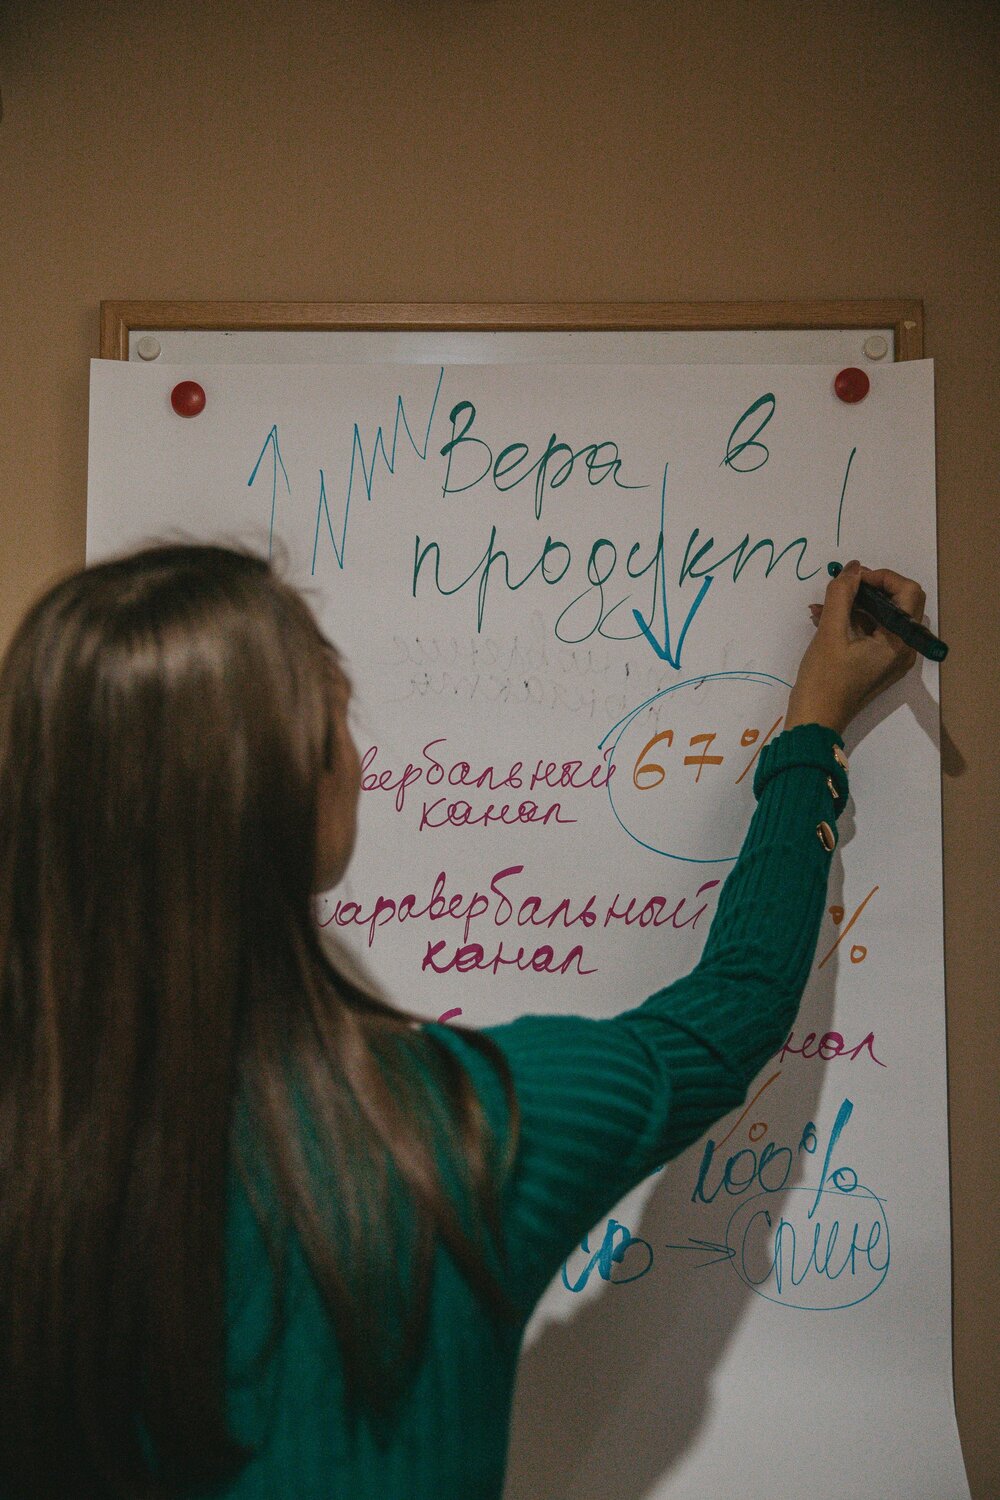 Вера в
продукт!
67%
вербальный
канал
паравербальный
канал
%
100%
СВ → Спин